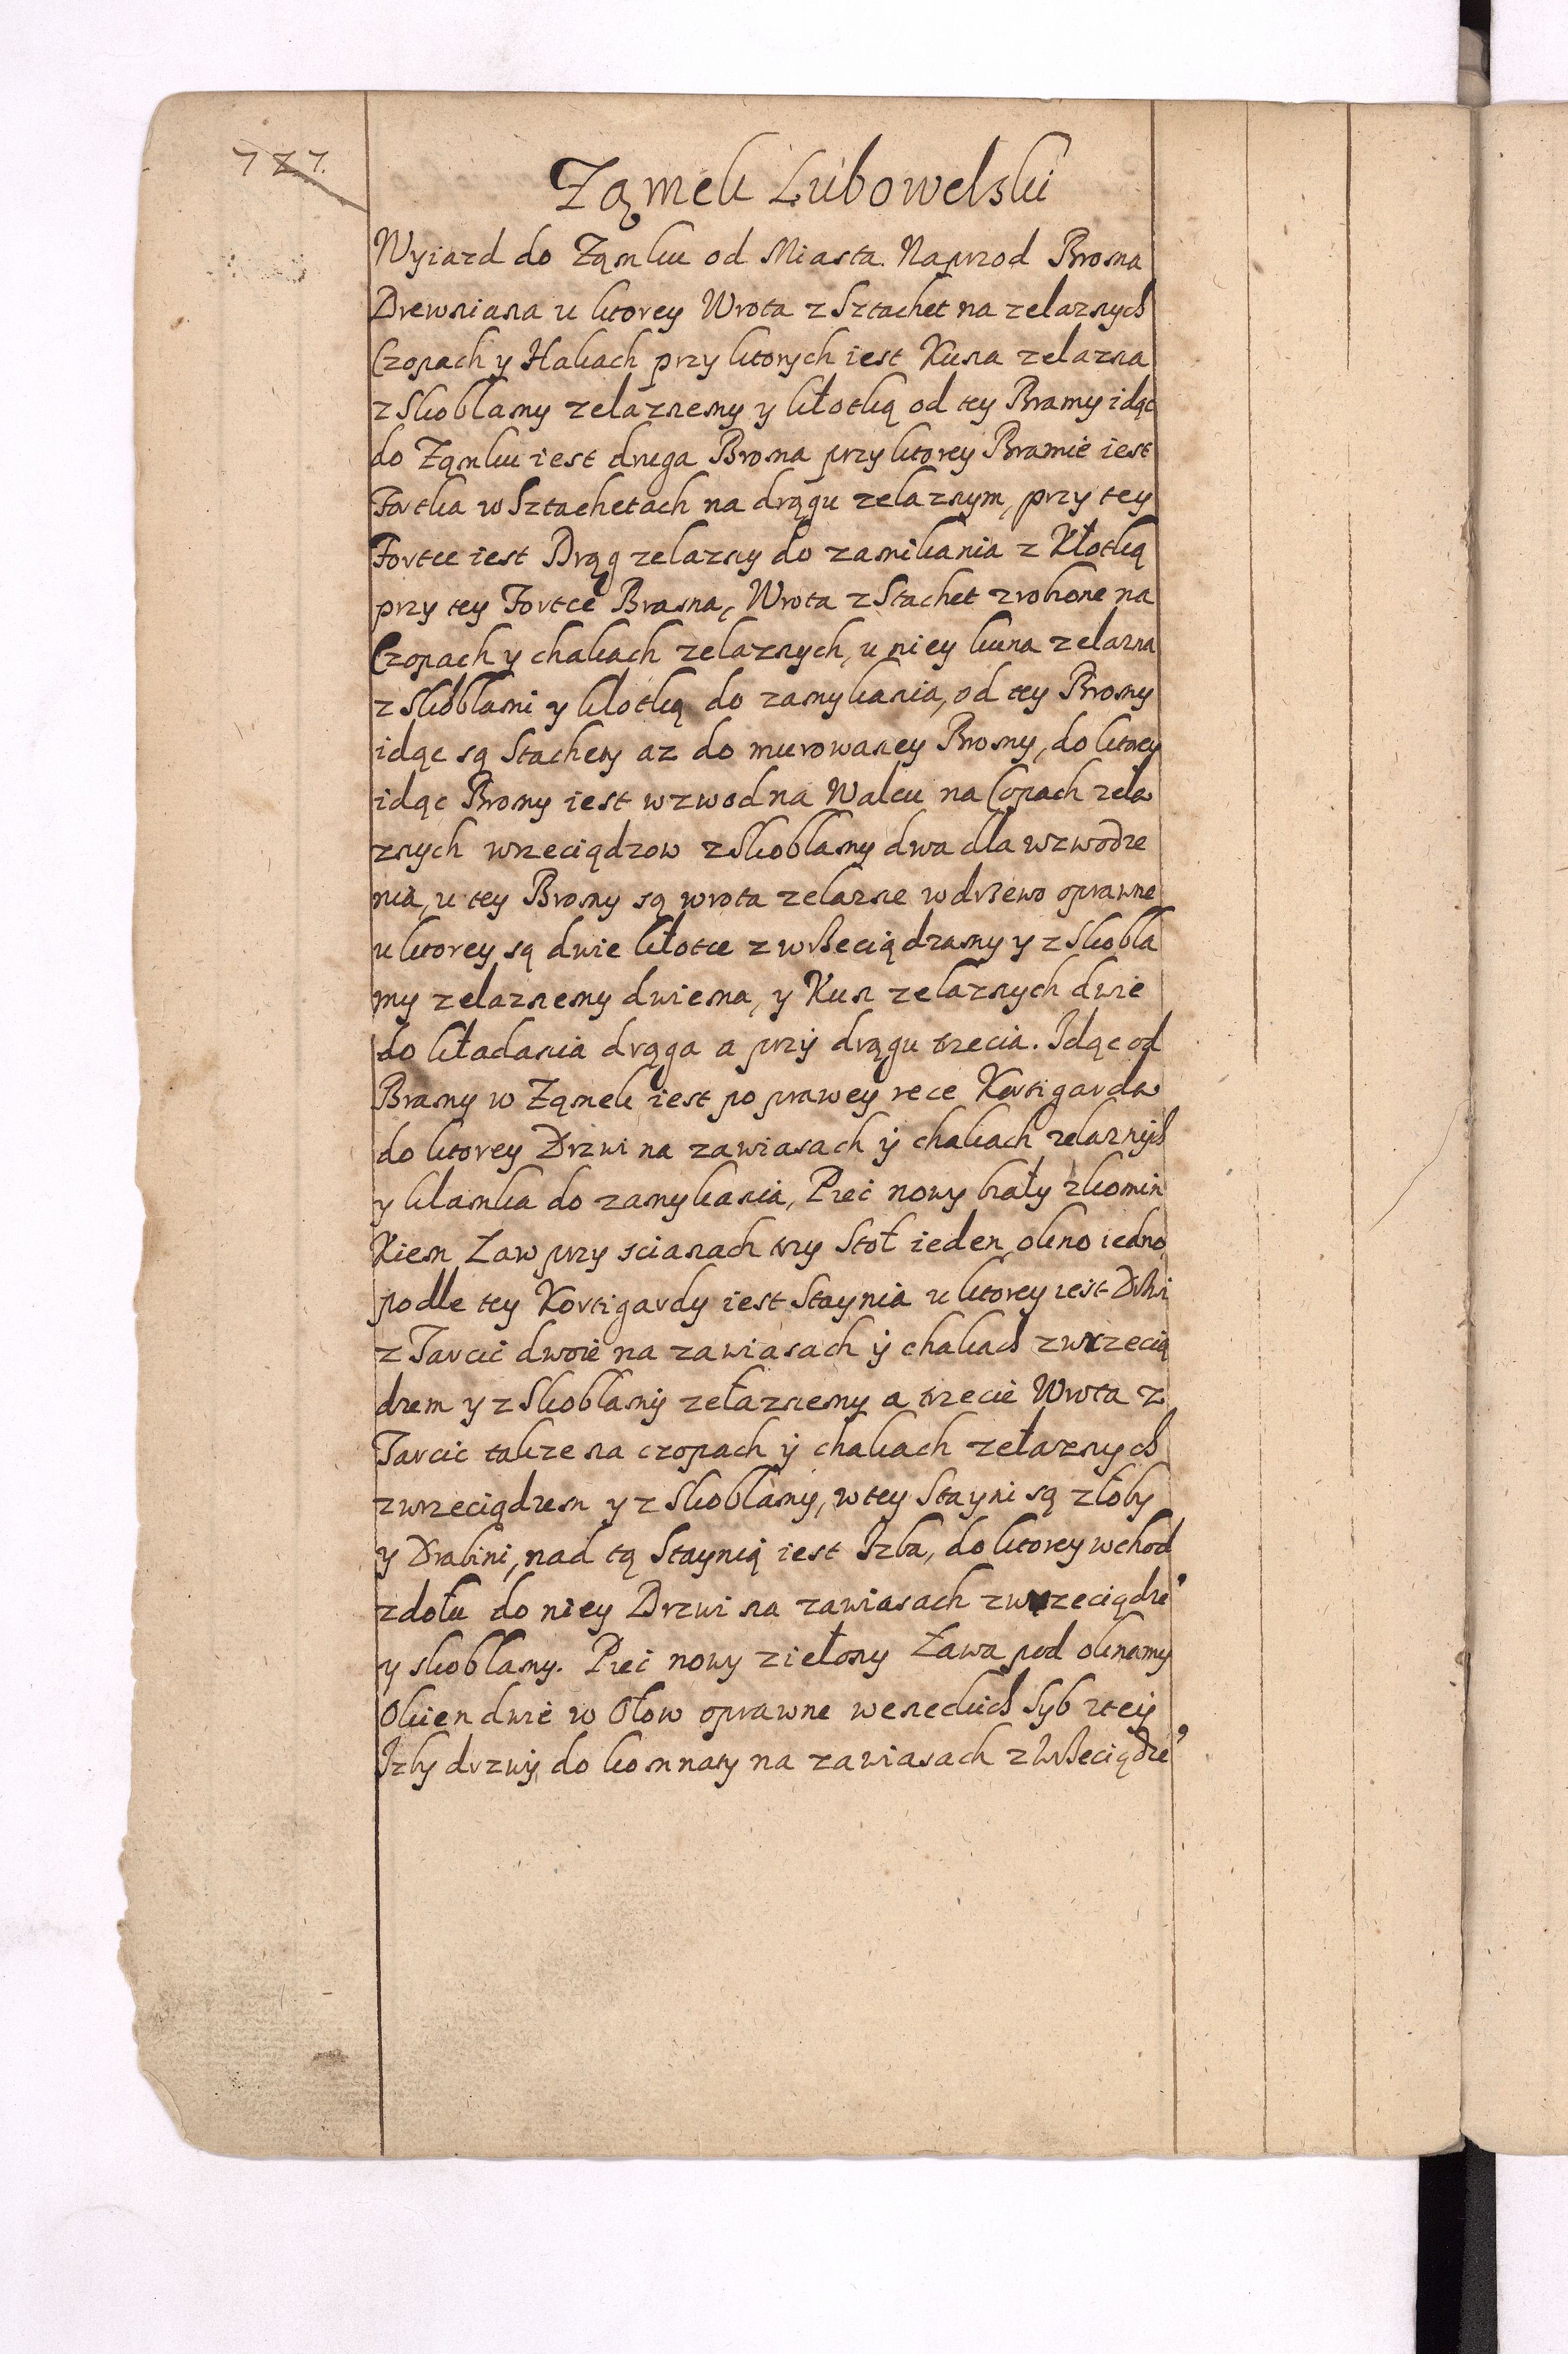 727.
Ząmek Lubowelski
Wyiazd do Ząmku od Miasta. Naprzod Broma
Drewniana u ktorey Wrota z Sztachet na zelaznych
Czopach y Hakach przy ktorych iest Kuna zelazna
z Skoblamy zelaznemy y kłotką od tey Bramy idąc
do Ząmku iest druga Broma przy ktorey Bramie iest
Fortka w Sztachetach na drągu zelaznym, przy tey
Fortce iest Drąg zelazny do zamikania z Kłotką
przy tey Fortce Brama, Wrota z Stachet zrobione na
Czopach y chakach zelaznych, u niey kuna zelazna
z Skoblami y klotką do zamykania, od tey Bromy
idąc są Stachety az do murowaney Bromy, do ktorey
idąc Bromy iest wzwodna Walcu na Copach zela
znych wrzeciądzow z Skoblamy dwa dla wzwodze
nia, u tey Bromy są wrota zelazne w drzewo oprawne
u ktorey są dwie kłotce z wrzeciądzamy y z Skobla
my zelaznemy dwiema, y Kun zelaznych dwie
do kładania drąga a przy drągu trzecia. Idąc od
Bramy w Ząmek iest po prawey rece Kortigarda
do ktorey Drzwi na zawiasach ÿ chakach zelaznÿch
y klamka do zamykania, Piec nowy biały z komin
Kiem Law przy scianach trzy Stoł ieden okno iedno
podle tey Kortigardy iest Staynia u ktorey iest Drzwi
z Tarcic dwoie na zawiasach ÿ chakach z wrzecią
dzem y z Skoblamÿ zełaznemy a trzecie Wrota z
Tarcic takze na czopach ÿ chakach zełaznych
z wrzeciądzem y z Skoblamÿ, w tey Stayni są złoby
y Drabini, nad tą Staynią iest Izba, do ktorey wchod
z dołu do niey Drzwi na zawiasach z wrzeciądze
y skoblamy. Piec nowy ziełony Ława pod oknamy
Okien dwie w Ołow oprawne weneckich Syb z teÿ
Izby drzwÿ do komnaty na zawiasach z wrzeciądze